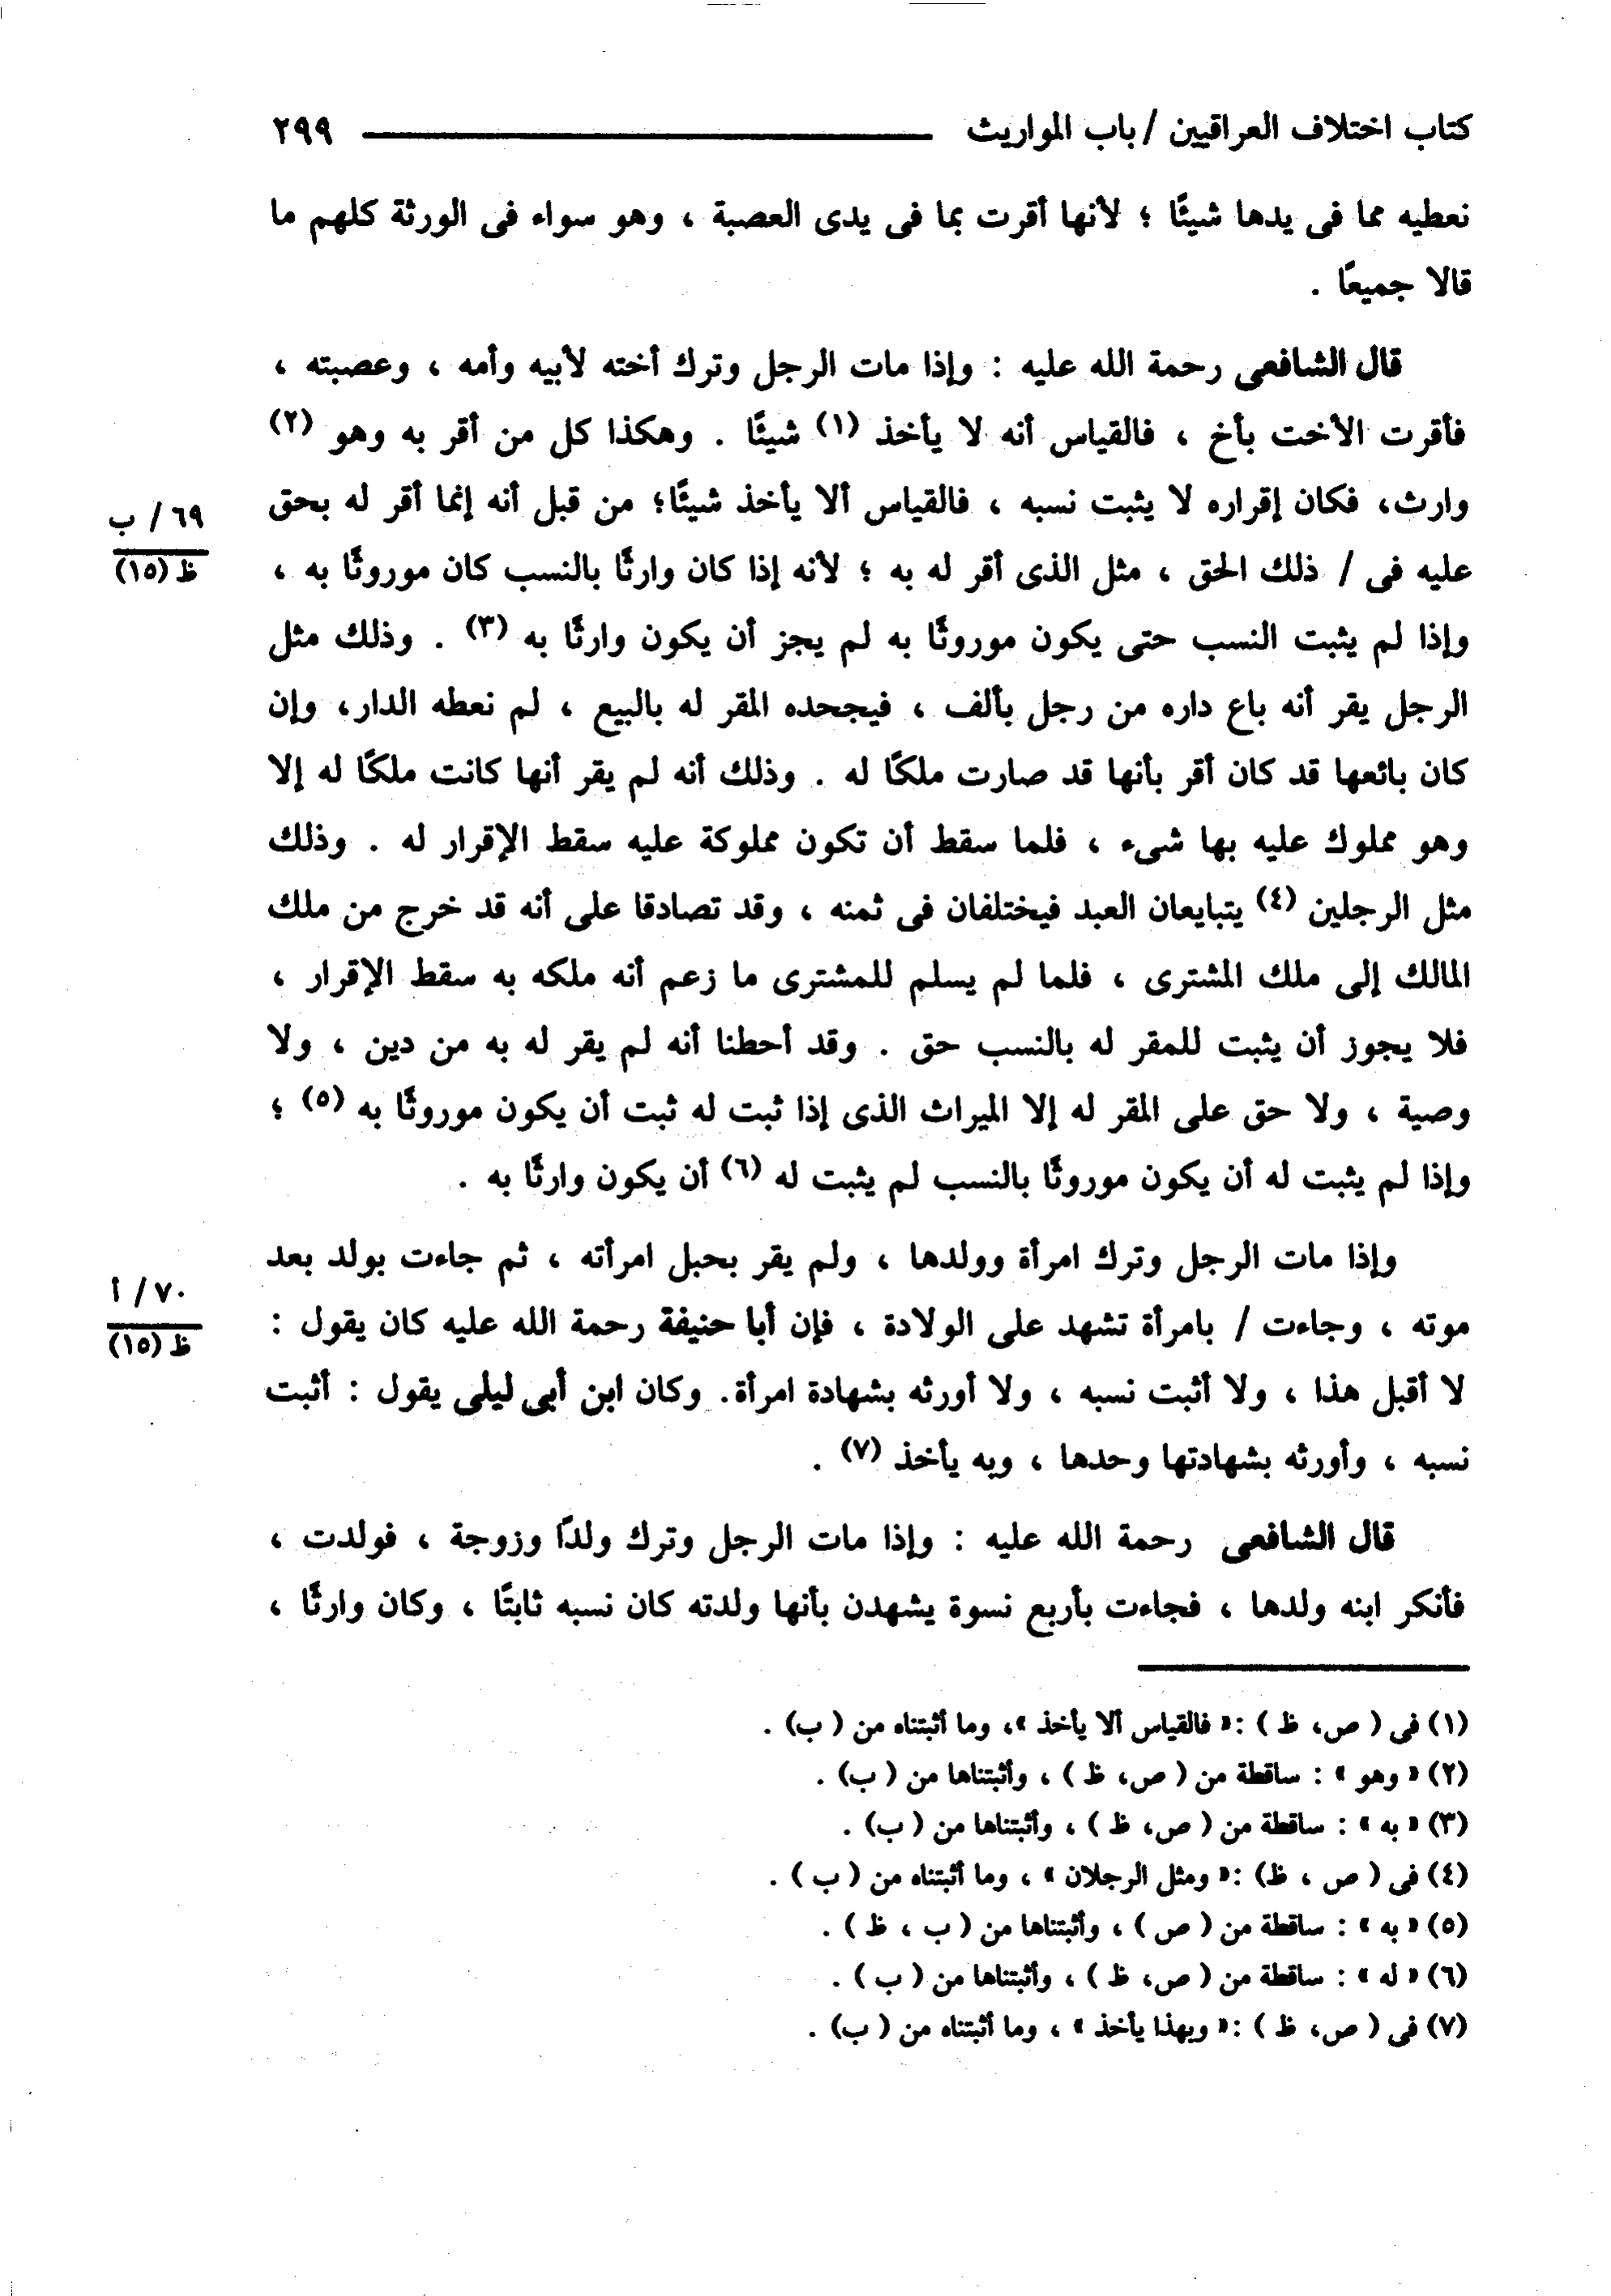 كتاب اختلاف العراقيين / باب المواريث ٢٩٩
نعطيه مما فى يدها شيئًا ؛ لأنها أقرت بما فى يدى العصبة ، وهو سواء فى الورثة كلهم ما
قالا جميعًا .
قال الشافعى رحمة الله عليه : وإذا مات الرجل وترك أخته لأبيه وأمه ، وعصبته ،
فأقرت الأخت بأخ ، فالقياس أنه لا يأخذ (١) شيئًا . وهكذا كل من أقر به وهو (٢)
وارث، فكان إقراره لا يثبت نسبه ، فالقياس ألا يأخذ شيئًا؛ من قبل أنه إنما أقر له بحق
٦٩/ ب
عليه فى / ذلك الحق ، مثل الذى أقر له به ؛ لأنه إذا كان وارثًا بالنسب كان موروثًا به ،
ظ (١٥)
وإذا لم يثبت النسب حتى يكون موروثًا به لم يجز أن يكون وارثًا به (٣) . وذلك مثل
الرجل يقر أنه باع داره من رجل بألف ، فيجحده المقر له بالبيع ، لم نعطه الدار، وإن
كان بائعها قد كان أقر بأنها قد صارت ملكًا له . وذلك أنه لم يقر أنها كانت ملكًا له إلا
وهو مملوك عليه بها شىء ، فلما سقط أن تكون مملوكة عليه سقط الإقرار له . وذلك
مثل الرجلين (٤) يتبايعان العبد فيختلفان فى ثمنه ، وقد تصادقا على أنه قد خرج من ملك
المالك إلى ملك المشترى ، فلما لم يسلم للمشترى ما زعم أنه ملكه به سقط الإقرار ،
فلا يجوز أن يثبت للمقر له بالنسب حق . وقد أحطنا أنه لم يقر له به من دين ، ولا
وصية ، ولا حق على المقر له إلا الميراث الذى إذا ثبت له ثبت أن يكون موروثًا به (٥) ؛
وإذا لم يثبت له أن يكون موروثًا بالنسب لم يثبت له (٦) أن يكون وارثًا به .
وإذا مات الرجل وترك امرأة وولدها ، ولم يقر بحبل امرأته ، ثم جاءت بولد بعد
٧٠/ أ
موته ، وجاءت / بامرأة تشهد على الولادة ، فإن أبا حنيفة رحمة الله عليه كان يقول :
ظ (١٥)
لا أقبل هذا ، ولا أثبت نسبه ، ولا أورثه بشهادة امرأة. وكان ابن أبى ليلى يقول : أثبت
نسبه ، وأورثه بشهادتها وحدها ، وبه يأخذ (٧) .
قال الشافعى رحمة الله عليه : وإذا مات الرجل وترك ولدًا وزوجة ، فولدت ،
فأنكر ابنه ولدها ، فجاءت بأربع نسوة يشهدن بأنها ولدته كان نسبه ثابتًا ، وكان وارثًا ،
(١) فى ( ص، ظ ) :« فالقياس ألا يأخذ »، وما أثبتناه من ( ب) .
(٢) « وهو » : ساقطة من ( ص، ظ ) ، وأثبتناها من ( ب) .
(٣) « به » : ساقطة من ( ص، ظ ) ، وأثبتناها من ( ب) .
(٤) فى ( ص ، ظ) :« ومثل الرجلان » ، وما أثبتناه من ( ب ) .
(٥) « به » : ساقطة من ( ص ) ، وأثبتناها من ( ب ، ظ ) .
(٦) « له » : ساقطة من ( ص، ظ ) ، وأثبتناها من ( ب ) .
(٧) فى ( ص، ظ ) :« وبهذا يأخذ » ، وما أثبتناه من ( ب) .